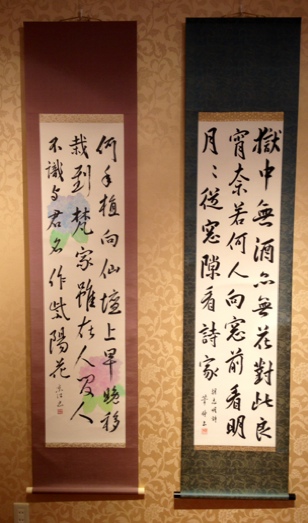 獄中無酒亦無花對此良
宵奈若何人向窓前看明
月々從窓隙看詩家
何年植向仙壇上早晩移
栽到梵家雖在人間人
不識与君名作紫陽花